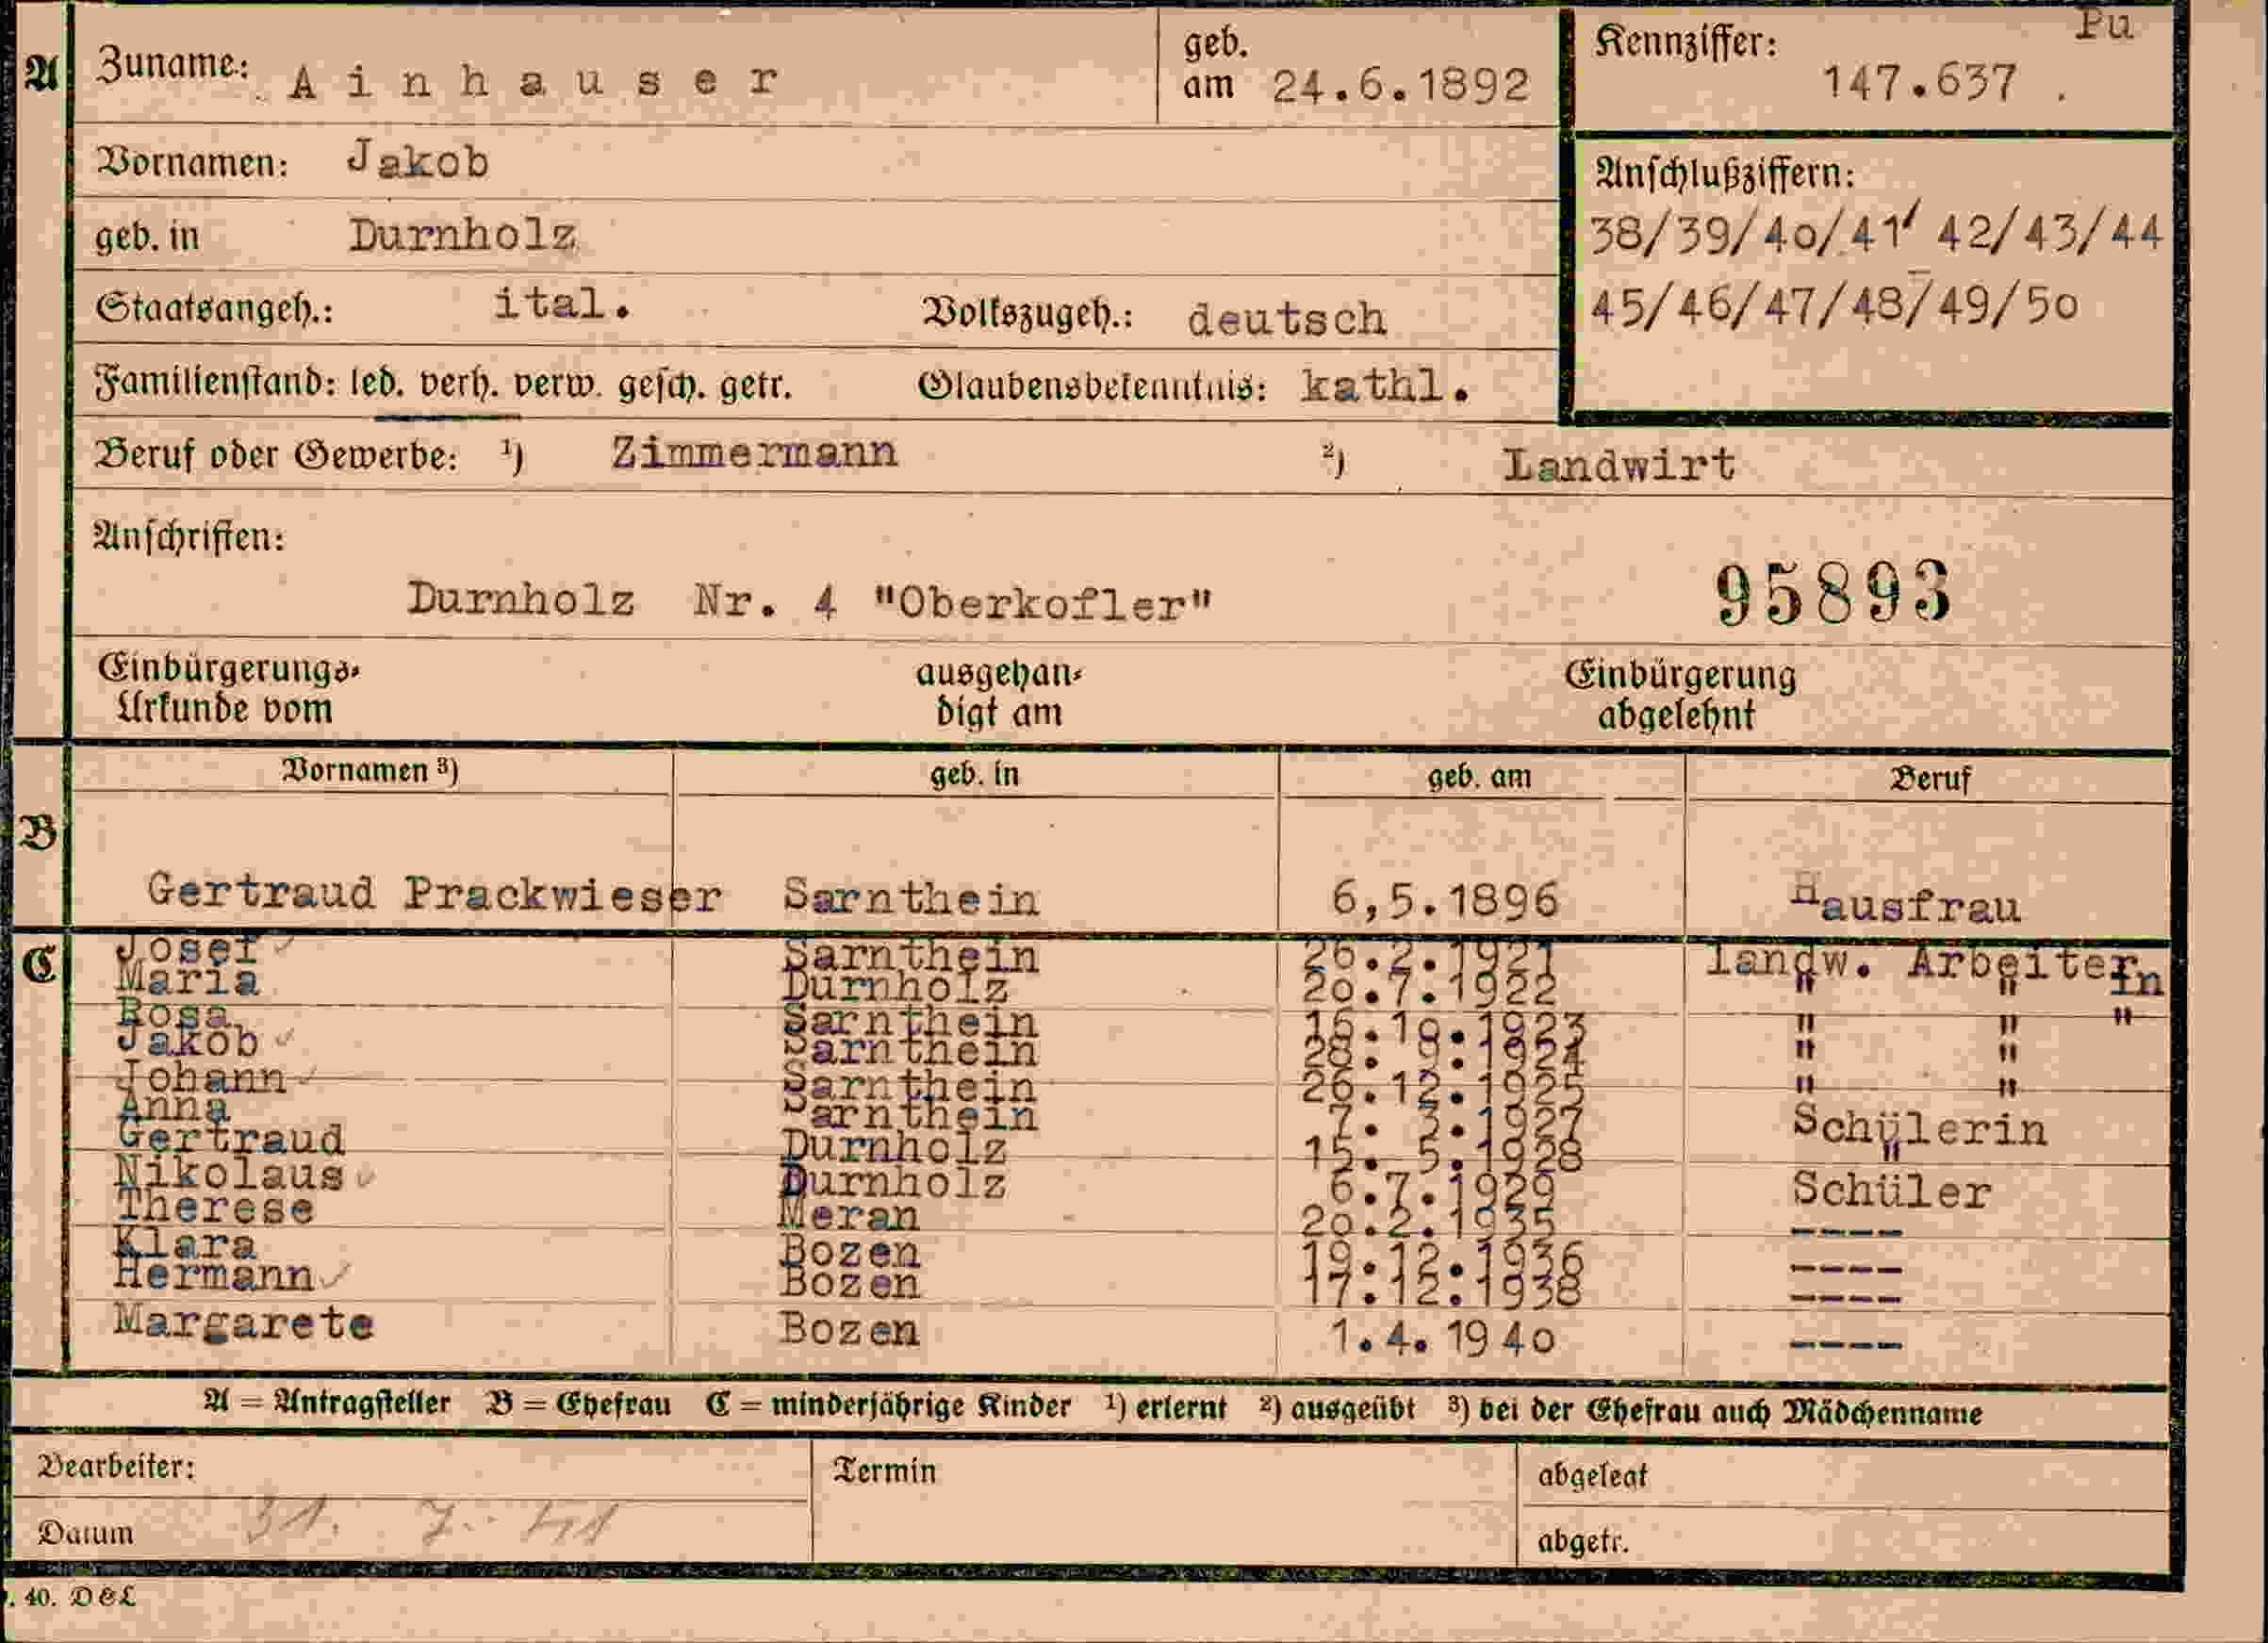 Pu
A Zuname: Ainhauser geb. am 24.6.1892 Kennziffer: 147.637 .
Vornamen: Jakob Anschlußziffern:
geb. in Durnholz 38/39/40/41/ 42/43/44
Staatsangeh.: ital. Volkszugeh.: deutsch 45/46/47/48/49/50
Familienstand: led. verh. verw. gesch. getr. Glaubensbekenntnis: kathl.
Beruf oder Gewerbe: ¹) Zimmermann ²) Landwirt
Anschriften:
Durnholz Nr. 4 "Oberkofler" 95893
Einbürgerungs- ausgehän- Einbürgerung
Urkunde vom digt am abgelehnt
Vornamen ³) geb. in geb. am Beruf
B
Gertraud Prackwieser Sarnthein 6,5.1896 Hausfrau
C Josef Sarnthein 26.2.1921 landw. Arbeiter
Maria Durnholz 20.7.1922 " " in
Rosa Sarnthein 1923 " " "
Jakob Sarnthein 1924 " "
Johann Sarnthein 26.12.1925 " "
Anna Sarnthein 7. 3.1927 Schülerin
Gertraud Durnholz 15. 5.1928 "
Nikolaus Durnholz 6.7.1929 Schüler
Therese Meran 20.2.1935 ----
Klara Bozen 19.12.1936 ----
Hermann Bozen 17.12.1938 ----
Margarete Bozen 1.4.1940 ----
A = Antragsteller B = Ehefrau C = minderjährige Kinder ¹) erlernt ²) ausgeübt ³) bei der Ehefrau auch Mädchenname
Bearbeiter: Termin abgelegt
Datum 31. 7. 41 abgetr.
. 40. D & L